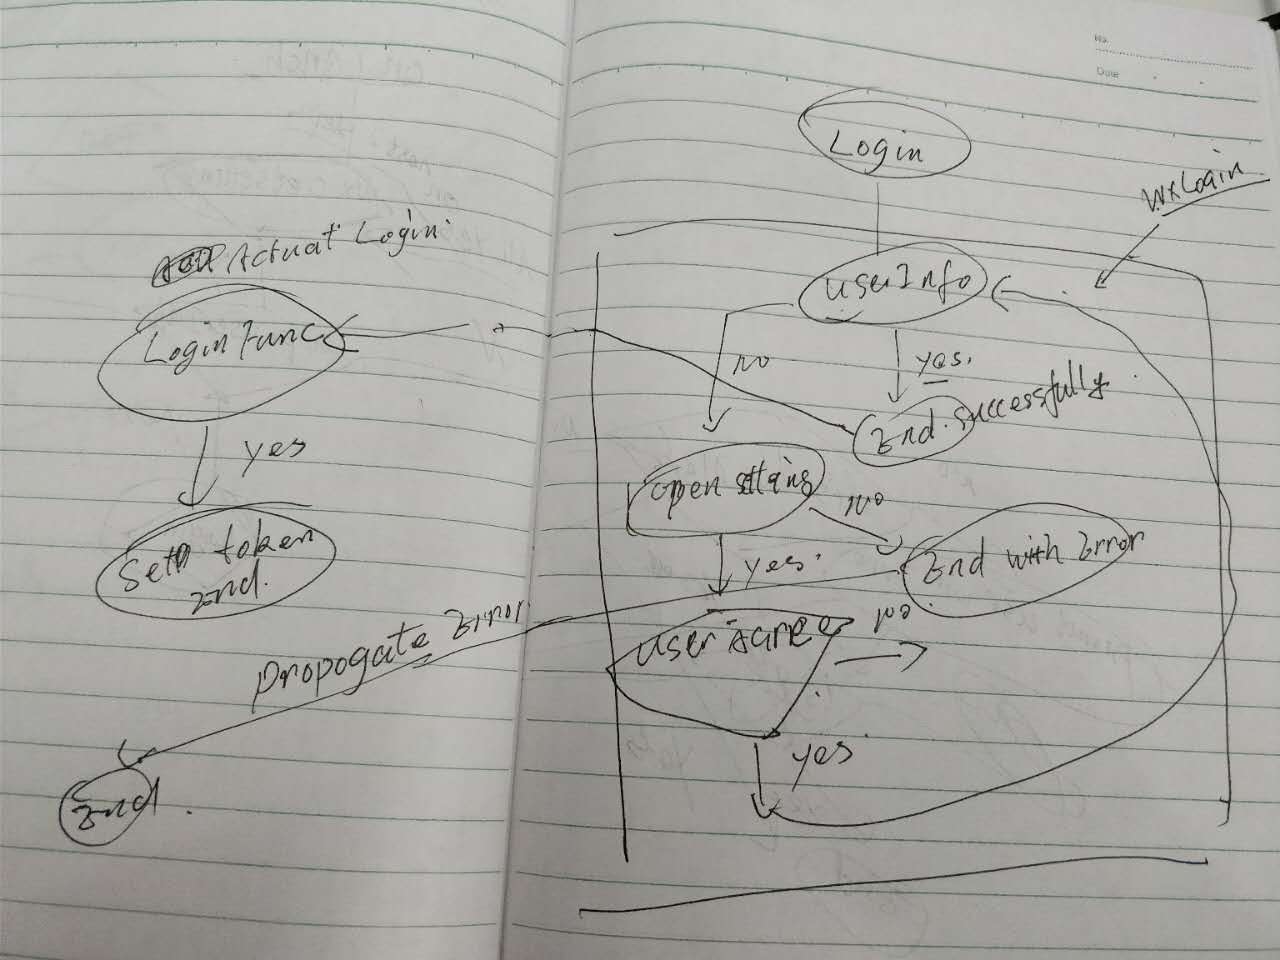 Actual Login
Login Func
yes
Set token
End.
Propogate Error
End.
No.
Date
Login
WxLogin
userInfo
no
yes.
End. successfully
open settings
no
yes.
End with Error
user Agree
no
yes